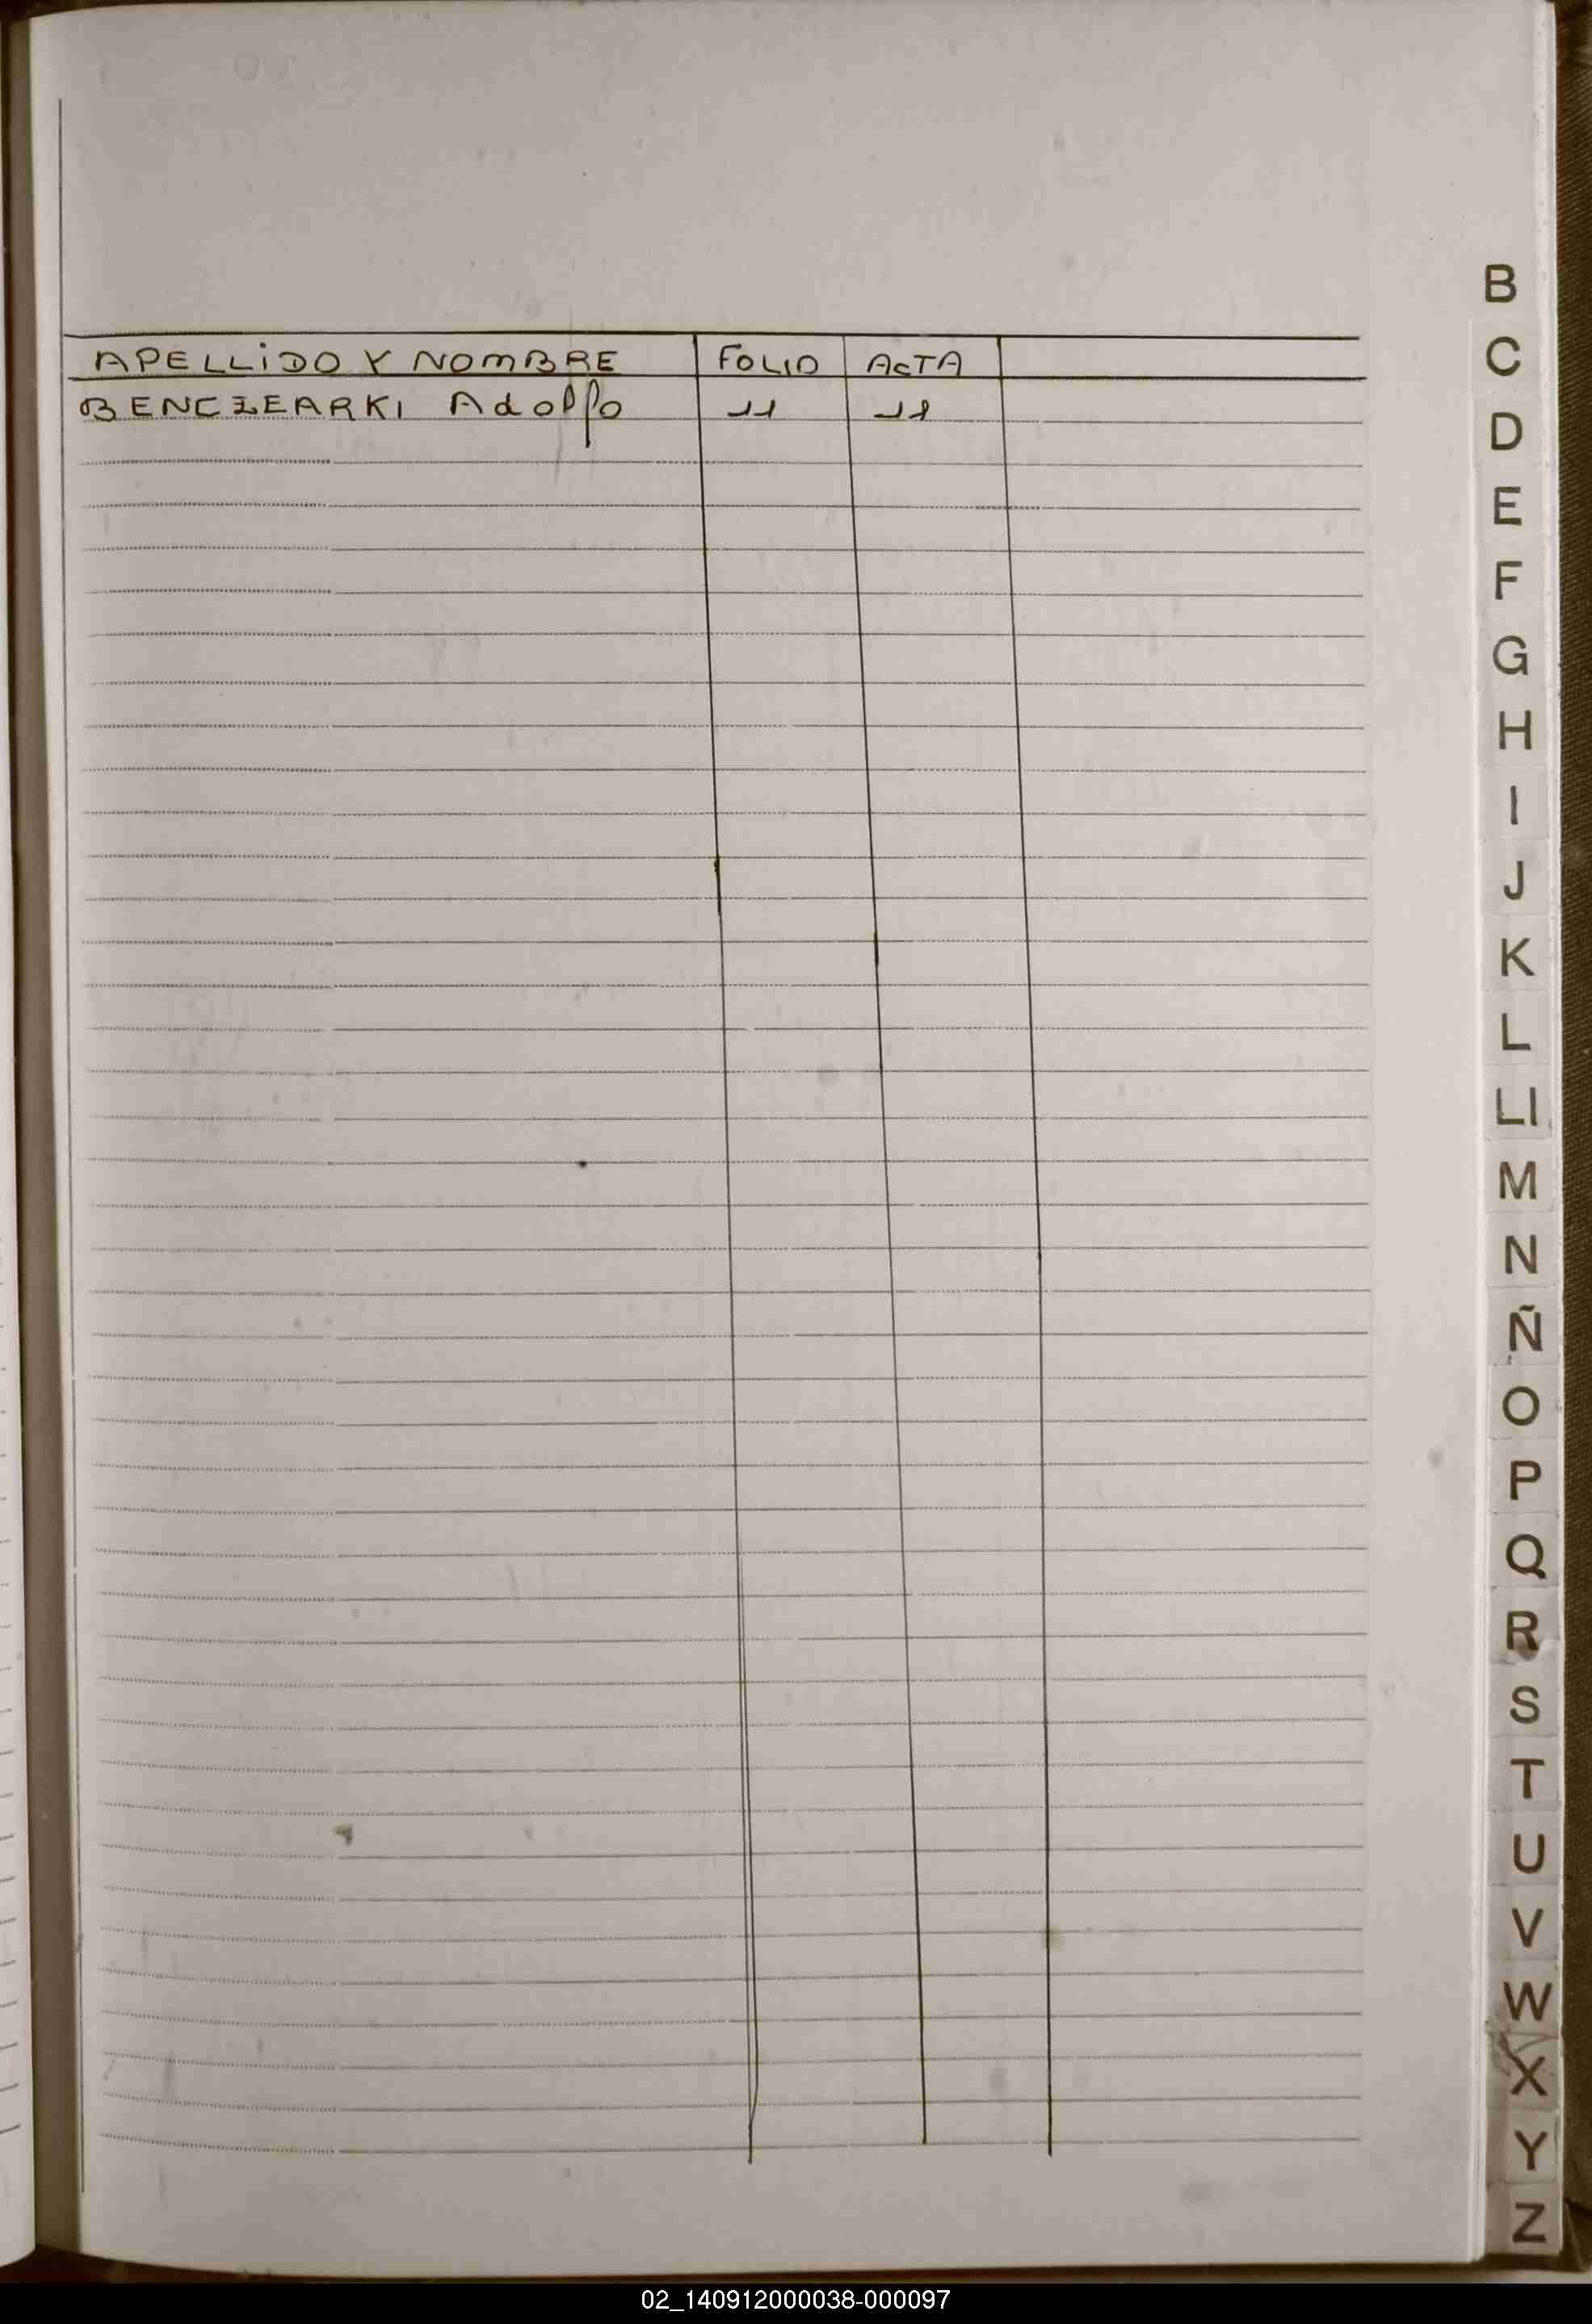 APELLIDO Y NOMBRE FOLIO ACTA
BENCZEARKI Adolfo 11 11
B
C
D
E
F
G
H
I
J
K
L
Ll
M
N
Ñ
O
P
Q
R
S
T
U
V
W
X
Y
Z
02_140912000038-000097